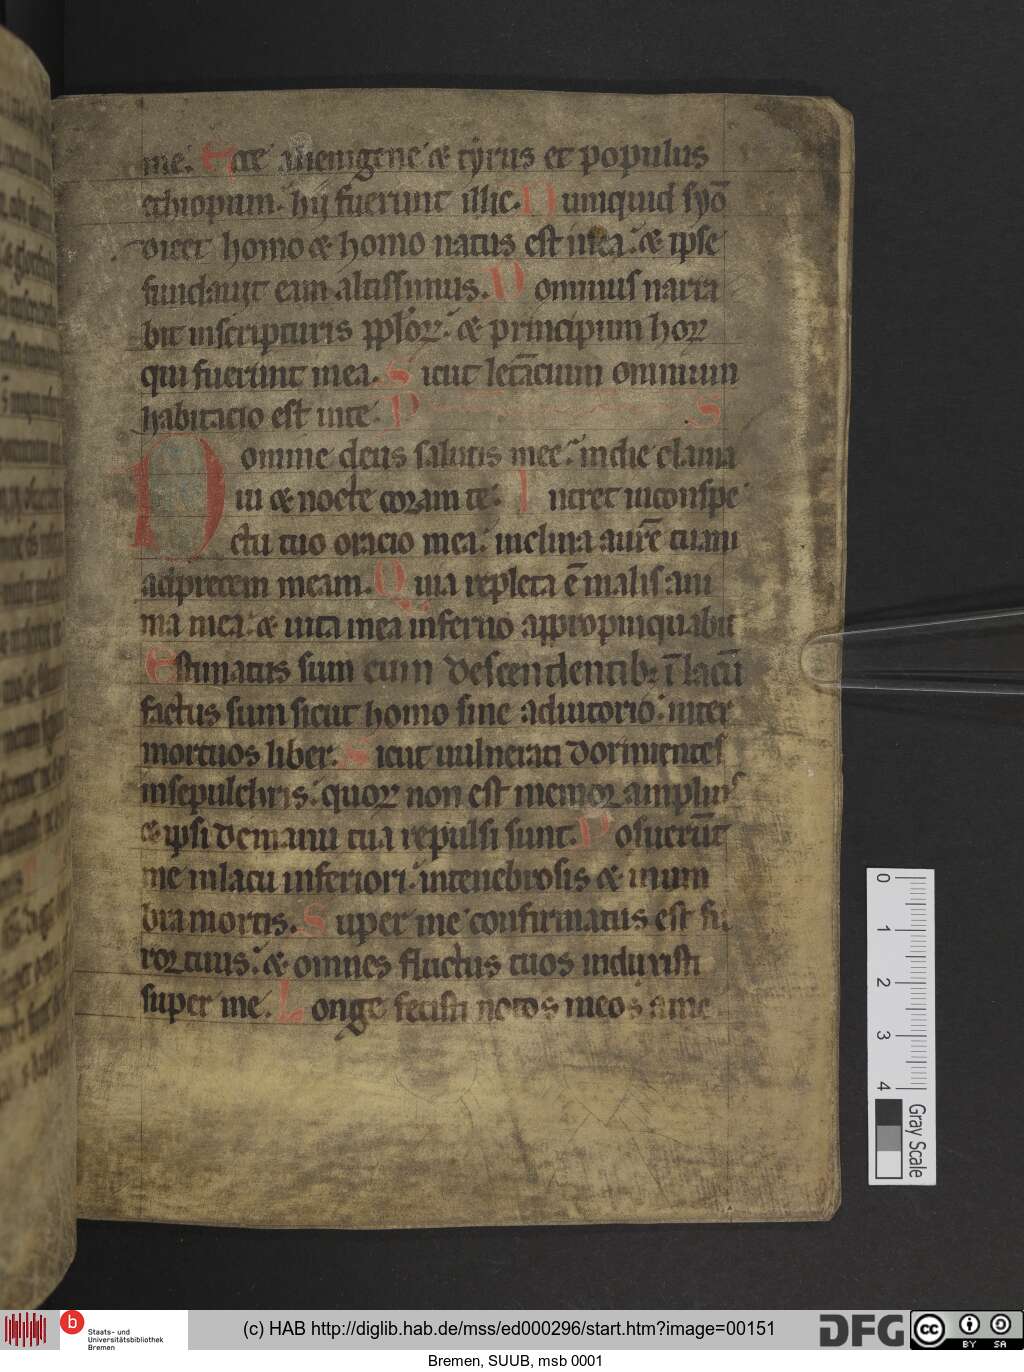 me. Ecce alienigene & tyrus et populus
ethiopum. hij fuerunt illic. Numquid syō
dicet homo & homo natus est inea. & ipse
fundauit eam altissimus. Dominus narra
bit inscripturis pploꝝ. & principum hoꝝ
qui fuerunt inea. Sicut letācium omnium
habitacio est inte. P S
Domine deus salutis mee. indie clama
ui & nocte coram te. Intret inconspe
ctu tuo oracio mea. inclina aurē tuam
adprecem meam. Quia repleta ē malis ani
ma mea. & uita mea inferno appropinquabit
Estimatus sum cum descendentib; ī lacū
factus sum sicut homo sine adiutorio. inter
mortuos liber. Sicut uulnerati dormientes
insepulchris. quoꝝ non est memor amplius
& ipsi demanu tua repulsi sunt. Posuerūt
me inlacu inferiori. intenebrosis & inum
bra mortis. Super me confirmatus est fu
ror tuus. & omnes fluctus tuos induxisti
super me. Longe fecisti notos meos ame
0
1
2
3
4
Gray Scale
b
Staats- und
Universitätsbibliothek
Bremen
(c) HAB http://diglib.hab.de/mss/ed000296/start.htm?image=00151
DFG
cc
BY SA
Bremen, SUUB, msb 0001